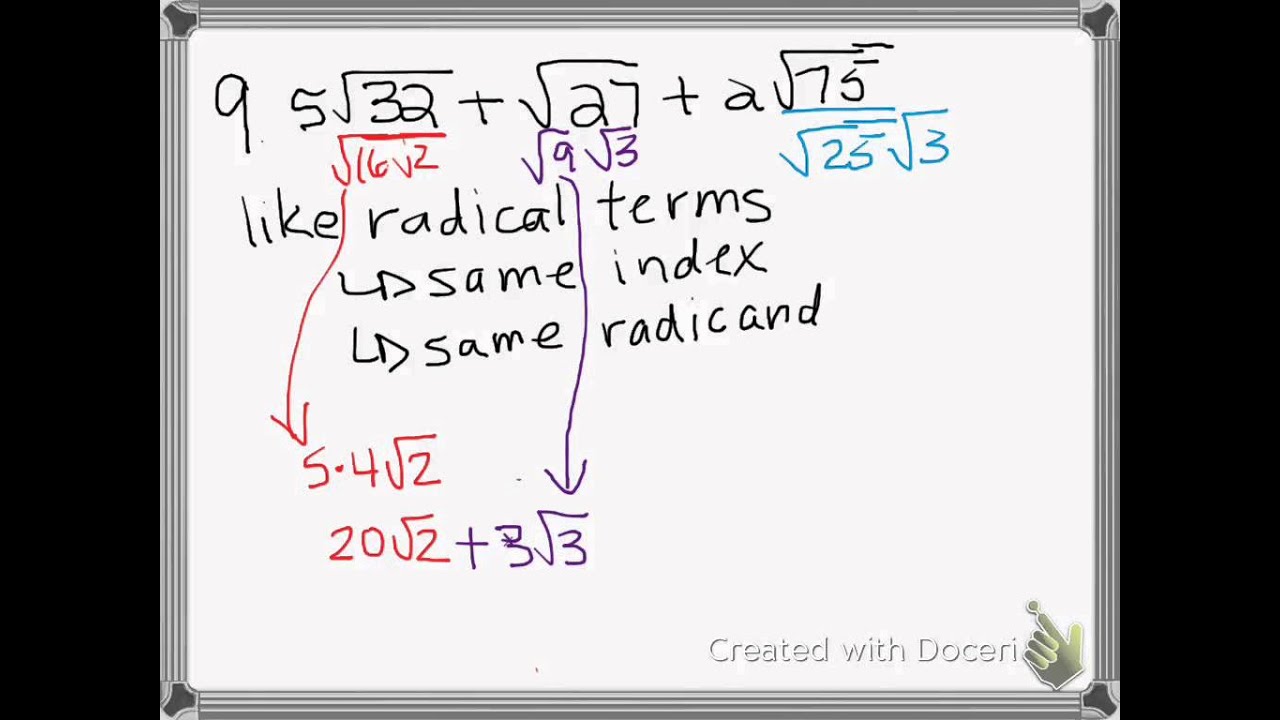 9. 5√32 + √27 + 2√75
√16√2 √9√3 √25√3
like radical terms
↳ same index
↳ same radicand
5·4√2
20√2 + 3√3
Created with Doceri